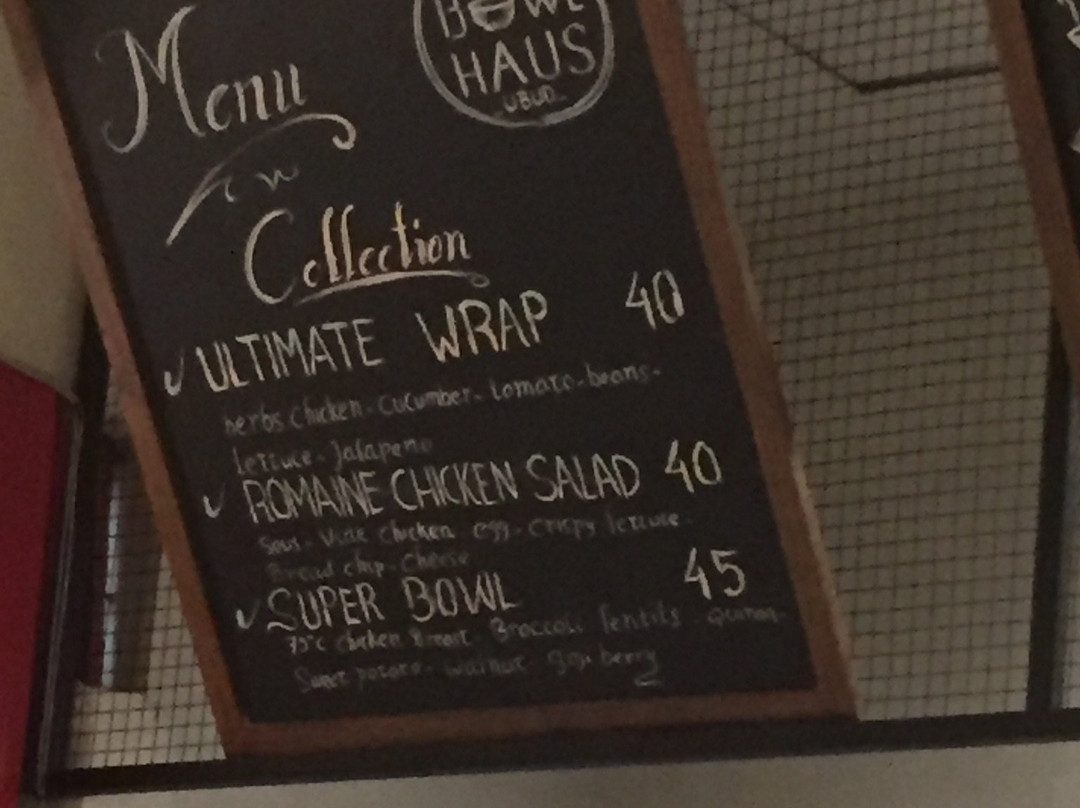 BOWL
HAUS
UBUD
Menu
Collection
ULTIMATE WRAP 40
herbs chicken - cucumber - tomato - beans -
lettuce - Jalapeno
ROMAINE CHICKEN SALAD 40
Sous - Vide chicken - egg - crispy lettuce -
Bread chip - cheese
SUPER BOWL 45
75°C chicken Breast - Broccoli lentils - Quinoa -
Sweet potato - walnut - goji berry